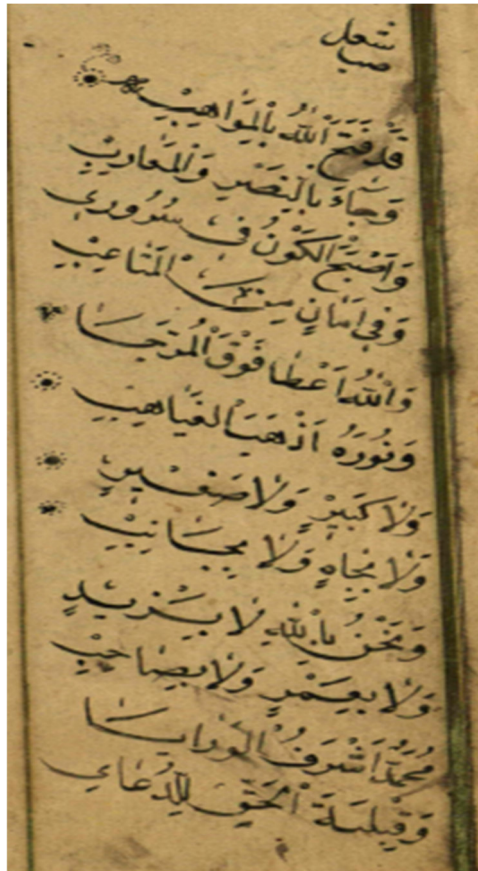 شغل
صب
قَدْ فَتَحَ اللّٰهُ بِالْمَوَاهِبِ
وَجَاءَ بِالنَّصْرِ وَالْمَعَارِبِ
وَاَصْبَحَ الْكَوْنُ فِى سُرُورِى
وَفِى اَمَانٍ مِنَ الْمَتَاعِبِ
وَاللّٰهُ اَعْطَا فَوْقَ الْمُرَجَا
وَنُورُهُ اَذْهَبَ الْغَيَاهِبِ
وَلَا كَبِيرٍ وَلَا صَغِيرٍ
وَلَا بِجَاهٍ وَلَا بِجَانِبِ
وَنَحْنُ بِاللّٰهِ لَا بِزَيْدٍ
وَلَا بِعَمْرٍ وَلَا بِصَاحِبِ
مُحَمَّدٌ اَشْرَفُ الْوَرَا
وَقِبْلَةَ الْحَقِّ لِلدُّعَاىِ